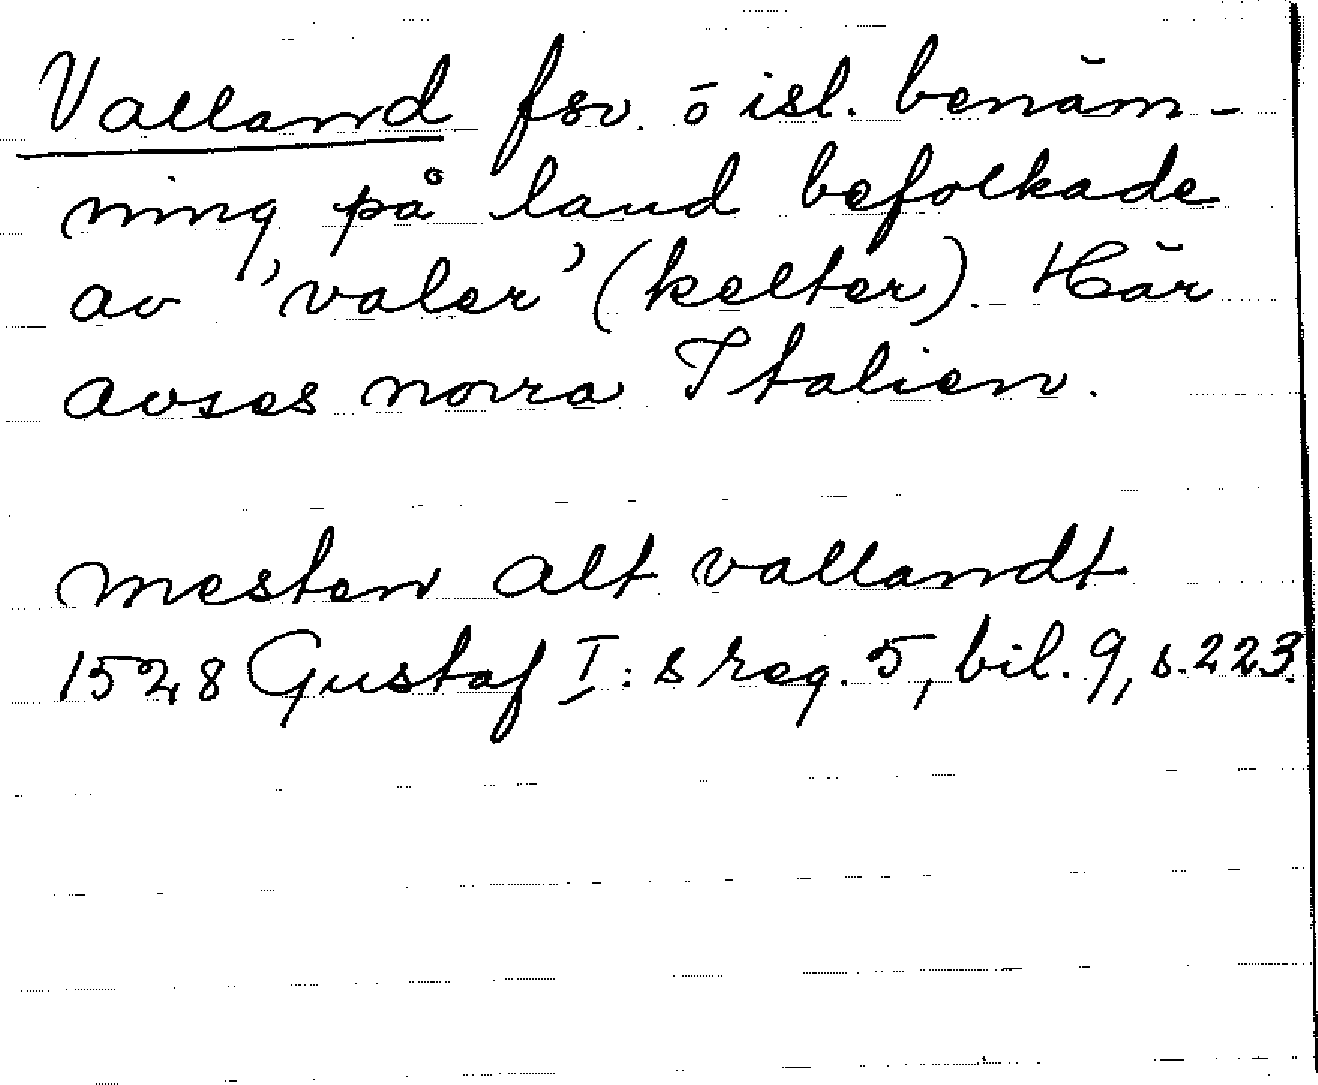 Valland fsv. ō isl. benäm-
ning på land befolkade
av 'valer' (kelter). Här
avses norra Italien.
mesten alt vallandt
1528 Gustaf I:s reg. 5, bil. 9, s. 223.